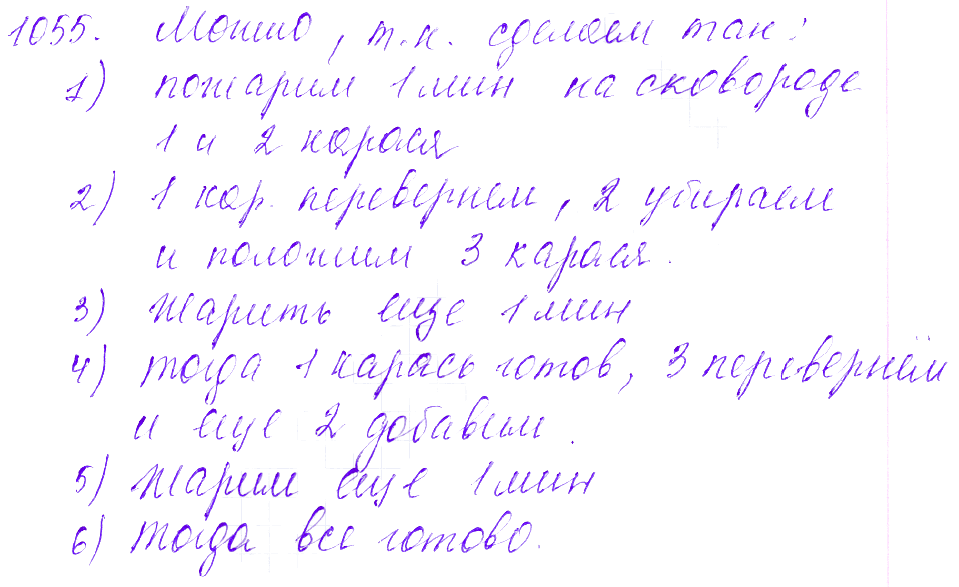 1055. Можно, т.к. сделаем так:
1) пожарим 1 мин на сковороде
1 и 2 карася
2) 1 кар. перевернем, 2 убираем
и положим 3 карася.
3) Жарить еще 1 мин
4) тогда 1 карась готов, 3 перевернём
и еще 2 добавим.
5) Жарим еще 1 мин
6) Тогда все готово.